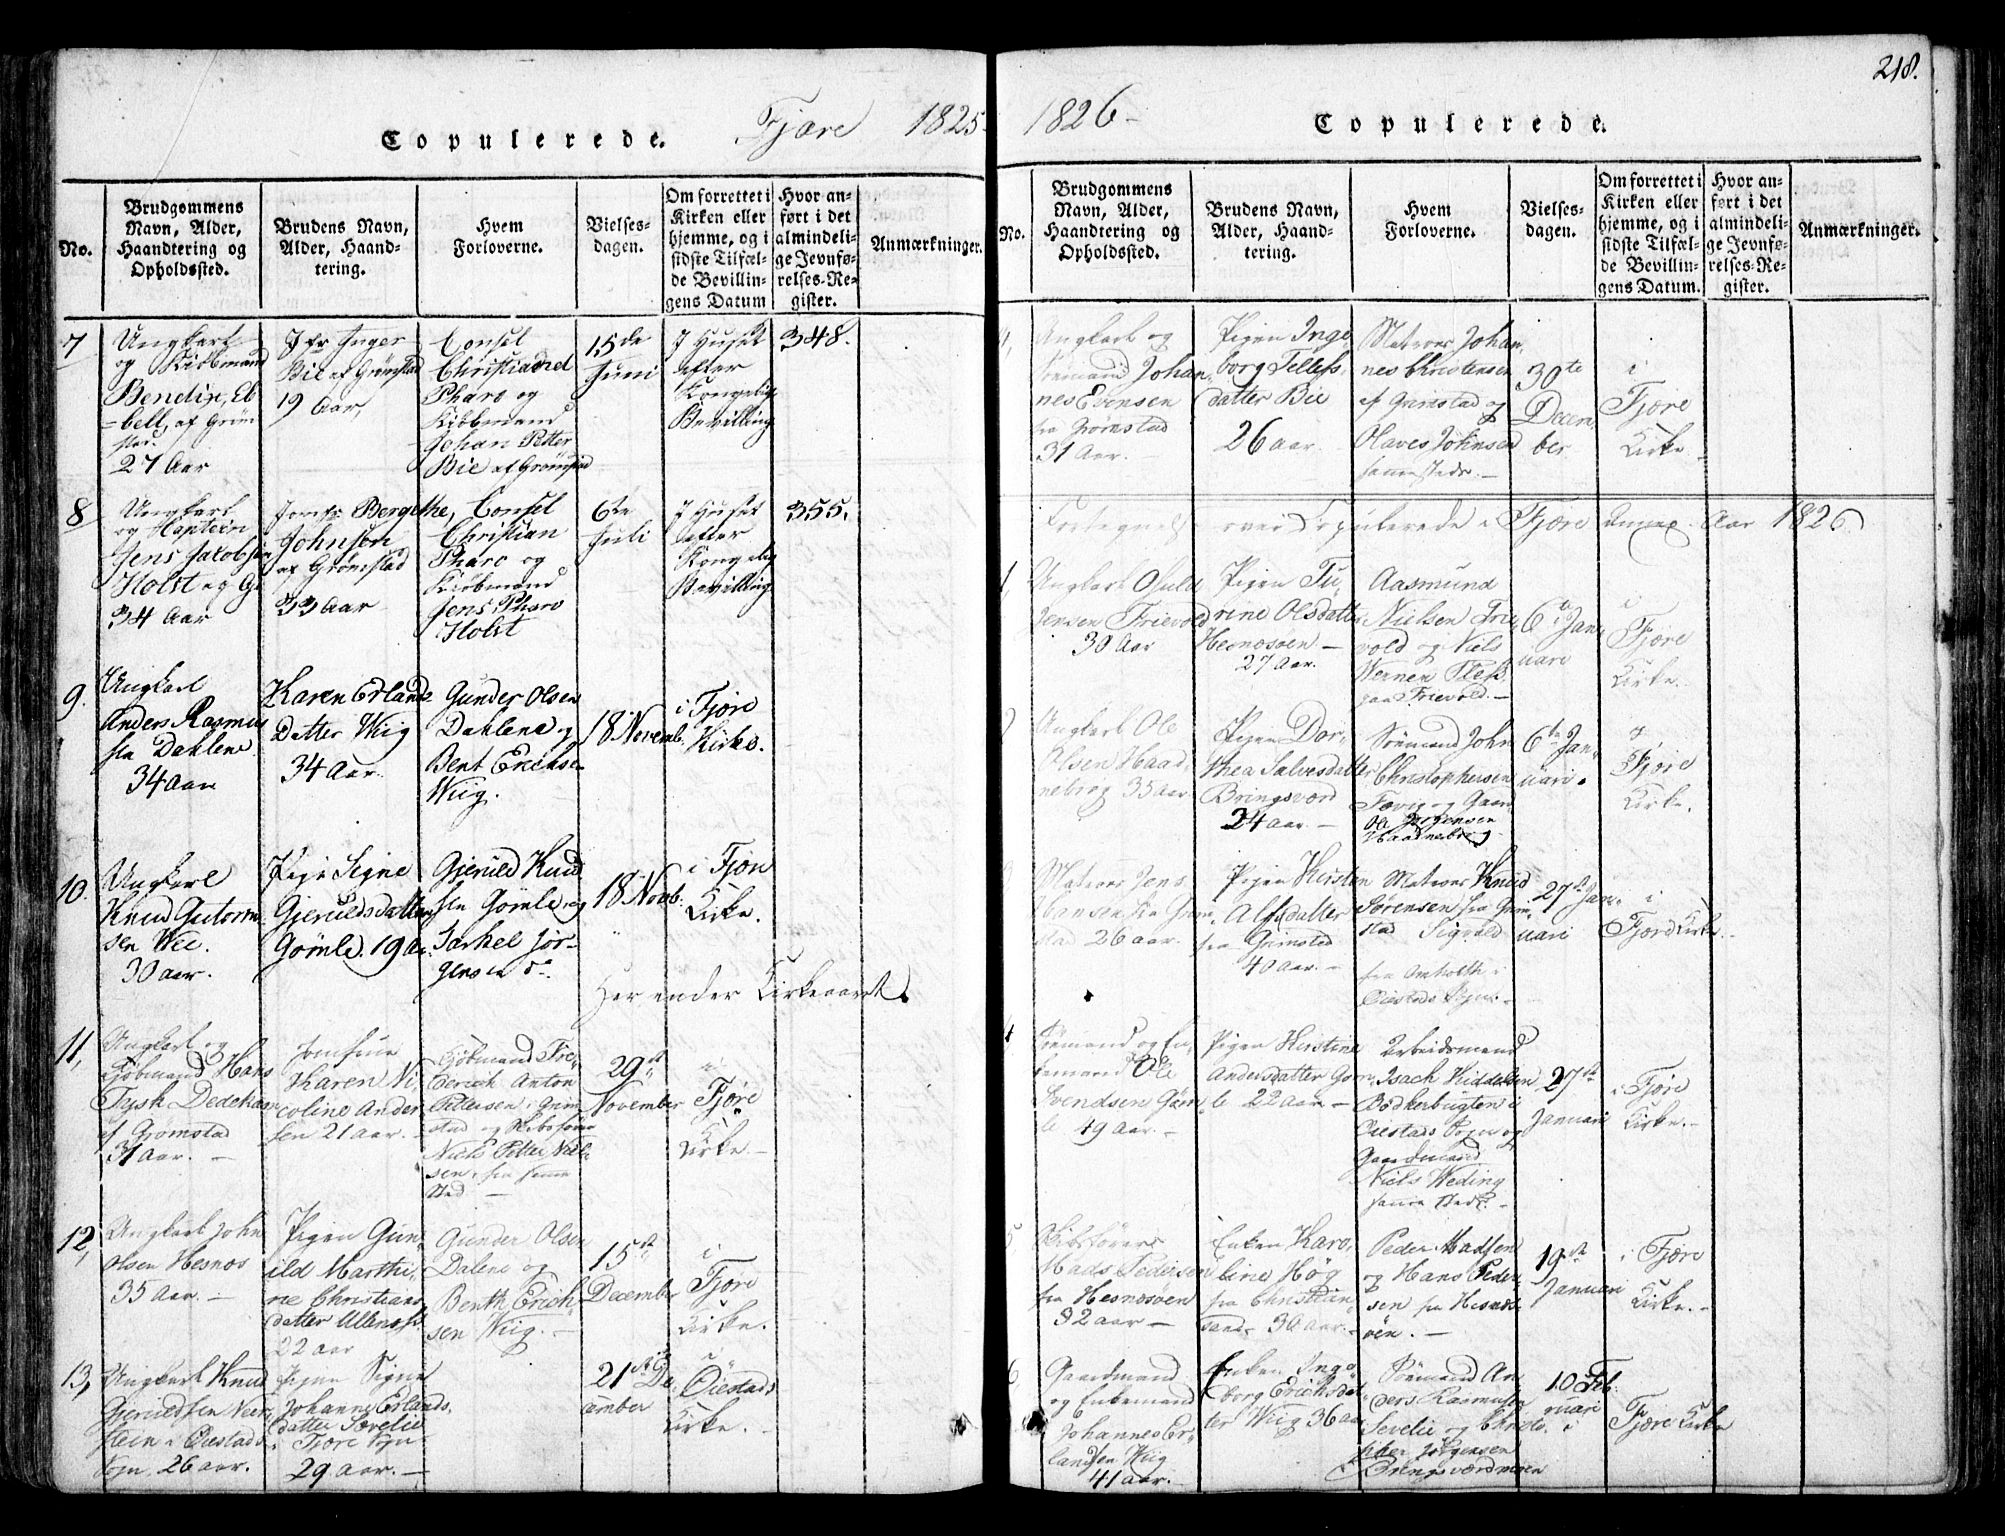 Copulerede. Fjære 1825
No.
Brudgommens
Navn, Alder,
Haandtering og
Opholdssted.
Brudens Navn,
Alder, Haand-
tering.
Hvem
Forloverne.
Vielses-
dagen.
Om forrettet i
Kirken eller
hjemme, og i
sidste Tilfæl-
de Bevillin-
gens Datum
Hvor an-
ført i det
almindeli-
ge Jevnfø-
relses-Re-
gister.
Anmærkninger.
7
Ungkarl
og Kiöbmand
Bendix Eb
bell, af Gröm
stad.
27 Aar
Jfr Inger
Bie af Grömstad
19 Aar,
Consel
Christian
Pharo og
Kiöbmand
Johan Petter
Bie af Grömstad
15de
Juni
I Huset
efter
Kongelig
Bevilling
348.
8
Ungkarl
og Captein
Jens Jacobsen
Holst
34 Aar
Jomfr Bergethe
Johnson
af Grömstad
33 Aar
Consel
Christian
Pharo og
Kiöbmand
Jens Pharo
Holst
6te
Juli
I Huset
efter
Kongelig
Bevilling
355.
9.
Ungkarl
Anders Rasmus
sen Dahlene
34 Aar
Karen Erlands
Datter Wiig
34 Aar.
Gunder Olsen
Dahlene og
Bent Erichsen
Wiig.
18 Novemb.
i Fjöre
Kirke.
10.
Ungkarl
Knud Gutorm-
sen Vee.
30 aar.
Pige Signe
Gjeruldsdatter
Gömle. 19 Aar.
Gjeruld Knud
sen Gömle og
Tarkel Jör-
gensen do
18 Novb.
i Fjöre
Kirke.
Her ender Kirkeaaret.
11,
Ungkarl og
Kjöbmand Hans
Tysk Dedekam
af Grömstad
31 Aar. —
Jomfrue
Karen Ni-
coline Ander
sen 21 aar. —
Kjöbmand Fre-
derich Anton
Pettersen i Grim
stad og
Niels Petter Niel-
sen, fra samme
Sted —
29de
November
Fjöre
Kirke. —
12,
Ungkarl John
Olsen Hesnæs
35 aar. —
Pigen Gun-
ild Marthi-
ne Christians
datter
22 aar
Gunder Olsen
Dalene og
Benth Erich-
sen Wiig. —
15de
December
i
Fjöre
Kirke.
13,
Ungkarl Knud
Gjeruldsen
i Öiestads
Sogn. 26 aar.
Pigen Signe
Johanne Erlands-
datter Sævelie
i Fjöre Sogn
29 aar. —
21de De-
cember
i
Öiestads
Kirke. —
218.
1826 — Copulerede.
No.
Brudgommens
Navn, Alder,
Haandtering og
Opholdssted.
Brudens Navn,
Alder, Haand-
tering.
Hvem
Forloverne.
Vielses-
dagen.
Om forrettet i
Kirken eller
hjemme, og i
sidste Tilfæl-
de Bevillin-
gens Datum.
Hvor an-
ført i det
almindeli-
ge Jevnfø-
relses-Re-
gister.
Anmærkninger.
Ungkarl og
Sömand Johan-
nes Evensen
fra Grömstad
31 Aar.
Pigen Inge-
borg Tellefs-
datter Bie
26 aar.
Matros Johan-
nes Christensen
af Grimstad og
Olaves Johnsen
sammesteds. —
30te
Decem-
ber
i
Fjöre
Kirke —
over Copulerede i Fjöre Annex Aar 1826
1,
Ungkarl
Jensen Frievold
30 Aar
Pigen Tu-
rine Olsdatter
Hesnæsöen —
27 Aar.
Aasmund
Nielsen Frie-
vold og Niels
Werner
Frievold. —
6te Jan-
uari
i
Fjöre
Kirke. —
2
Ungkarl Ole
Olsen Haad-
nebrog 35 aar
Pigen Dor-
thea Salvesdatter
Bringsværd
24 aar. —
Sömand John
Christophersen
Fævig og
Ole Jörgensen
Haadnebrog
6te Jan-
uari.
i
Fjöre
Kirke.
Matros Jens
Hansen fra Grim-
stad 26 aar.
Pigen Kirsten
Alfsdatter
fra Grimstad
40 Aar. —
Matros Knud
Sörensen fra Grim-
stad Sigvald
fra Omholth i
Öiestads Sogn. —
27de Jan-
uari
i
Fjöre Kirke. —
4
Sömand og En-
kemand Ole
Svendsen Göm-
le 49 aar. —
Pigen Kirstine
Andersdatter Göm-
le 22 aar —
Arbeidsmand
Isach Kiddelsen
Bödkerbugten i
Öiestads Sogn og
Gaardmand
Niels Weding
samme Sted. —
27de
Januari
i Fjöre
Kirke. —
5
Mads Pedersen
fra Hesnæsöen
32 aar —
Enken Karo-
line Hög
fra Christian-
sand. 30 aar. —
Peder Madsen
og Hans Peder-
sen fra Hesnæs-
öen. —
19de
Januari
i Fjöre
Kirke. —
6
Gaardmand
og Enkemand
Johannes Er-
landsen Wiig
41 aar. —
Enken Inge-
borg Erichsdat-
ter Wiig 36 aar
Sömand An-
ders Rasmusen
Sevelie og Christo-
pher Jörgensen
Bringsværdmoen
10 Feb-
ruari
i
Fjære Kirke